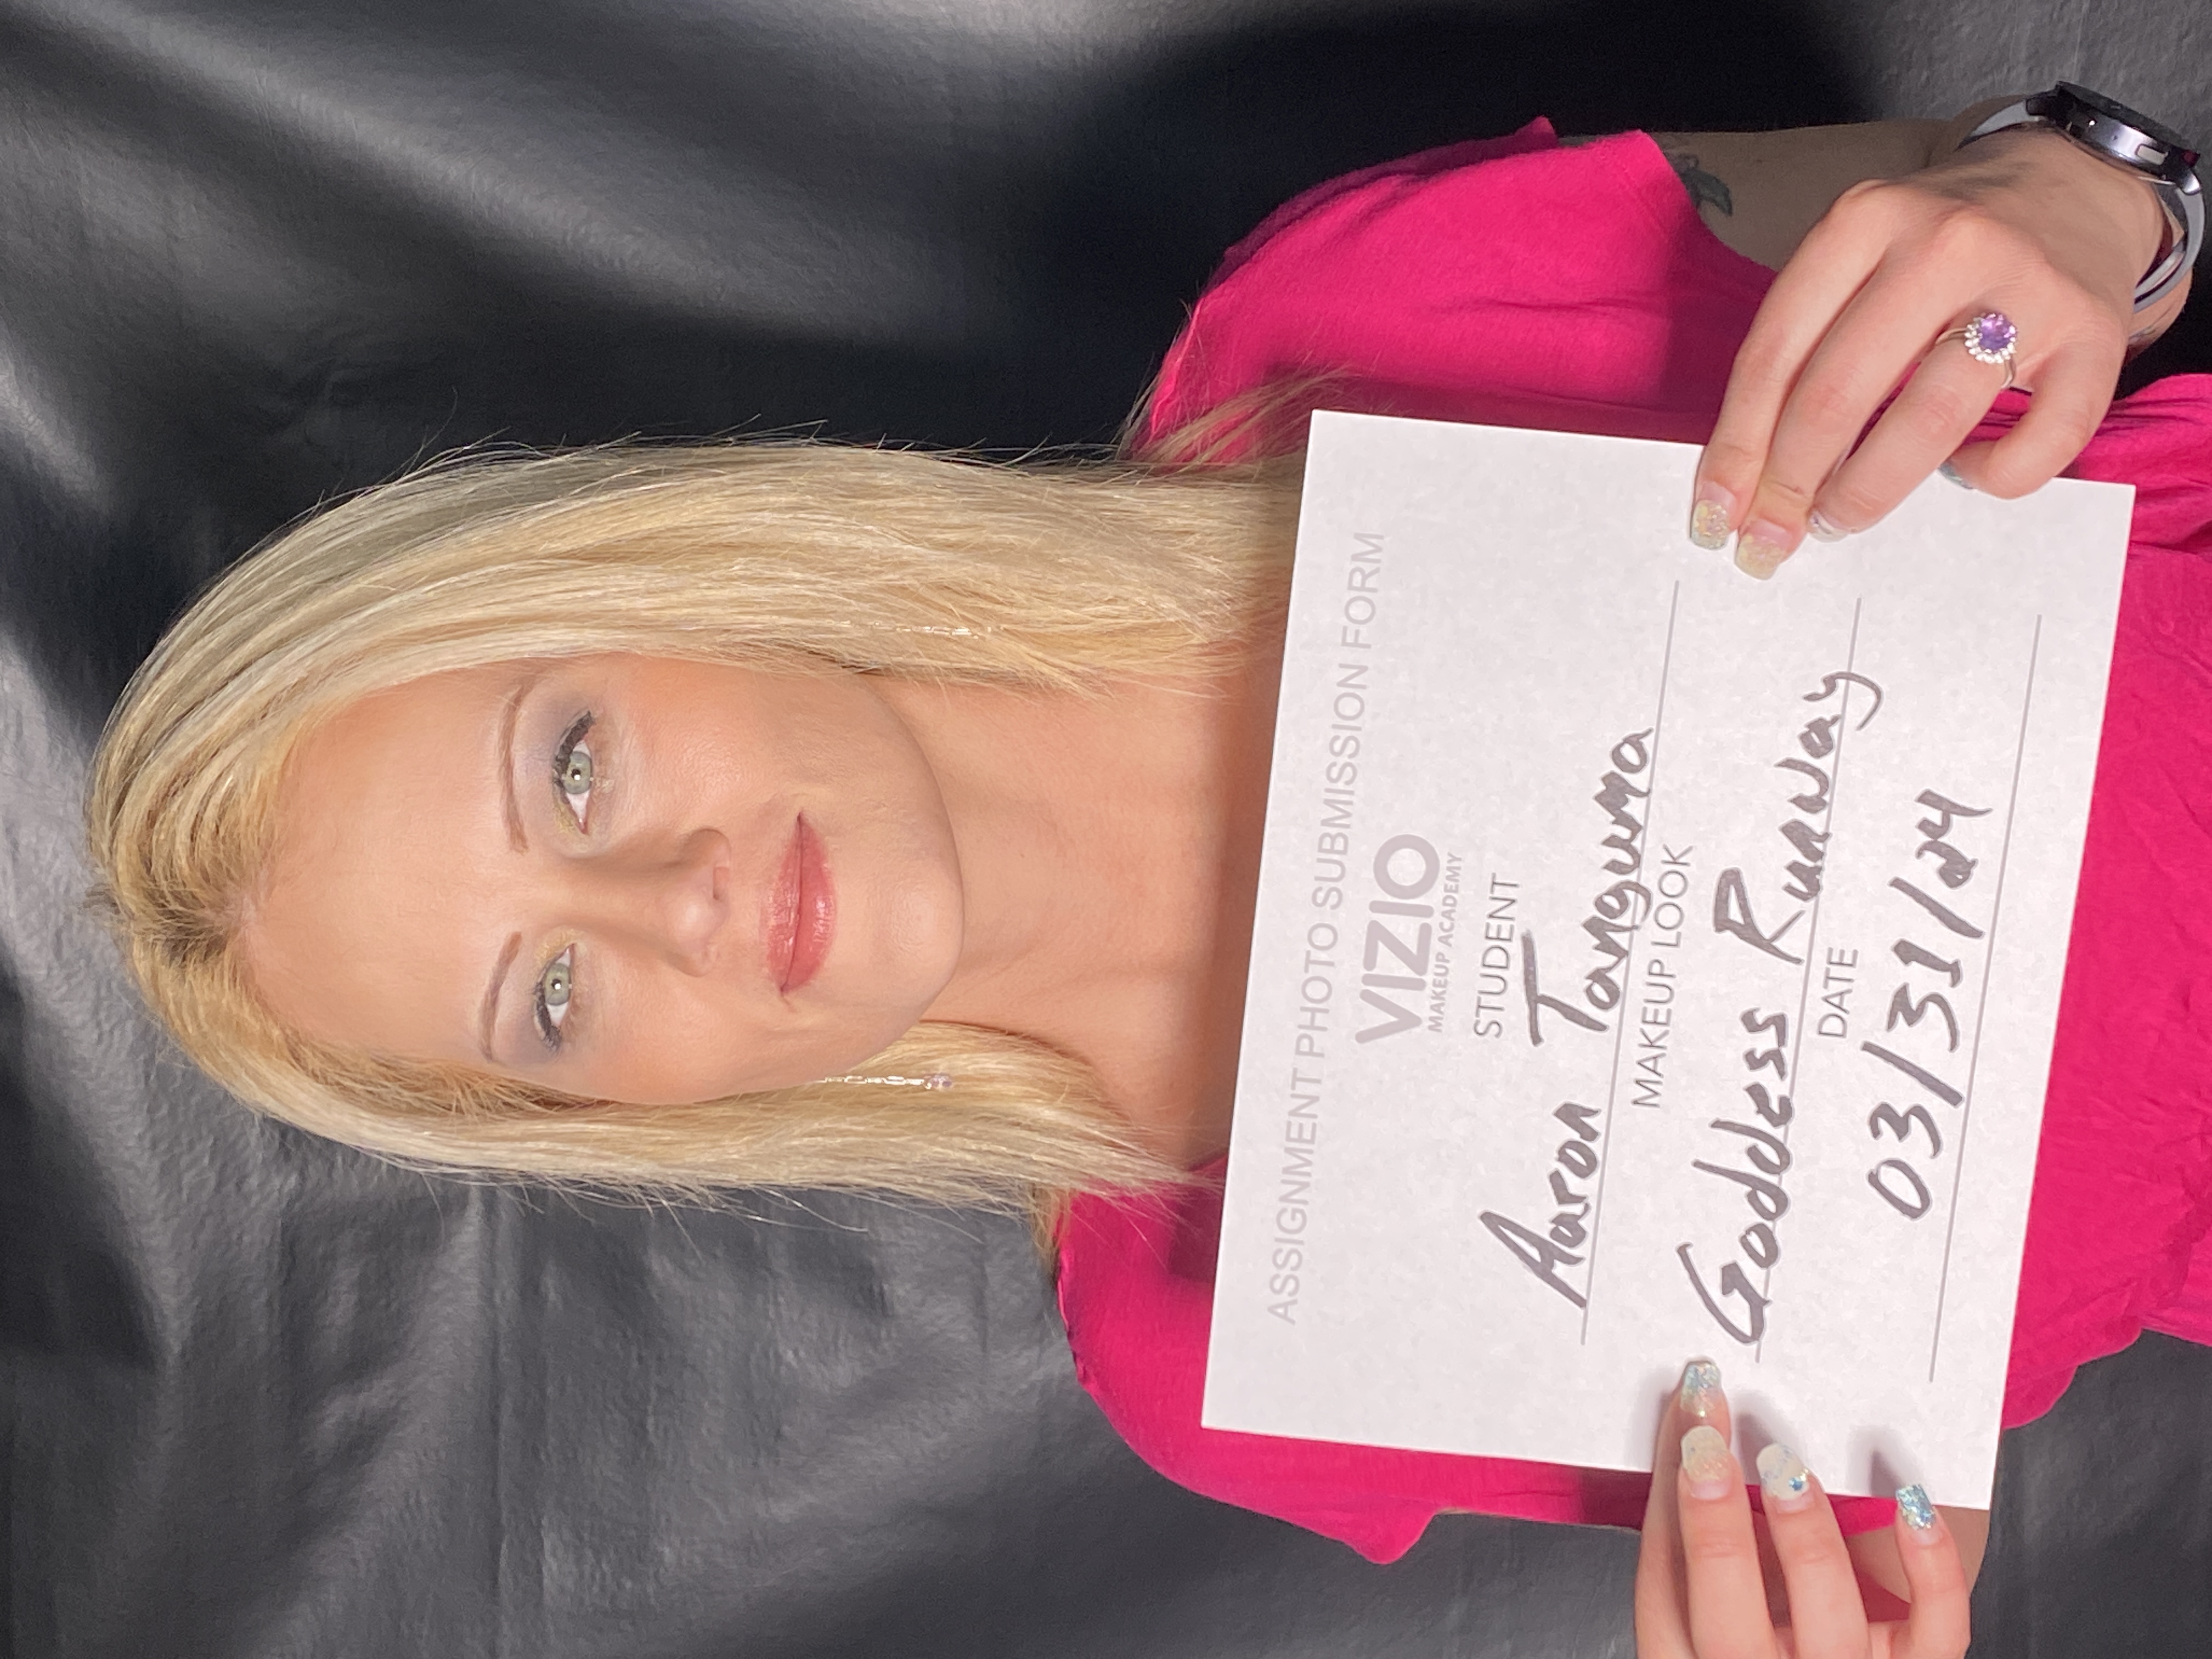 ASSIGNMENT PHOTO SUBMISSION FORM
VIZIO
MAKEUP ACADEMY
STUDENT
Aaron Tanguma
MAKEUP LOOK
Goddess Runway
DATE
03/31/24